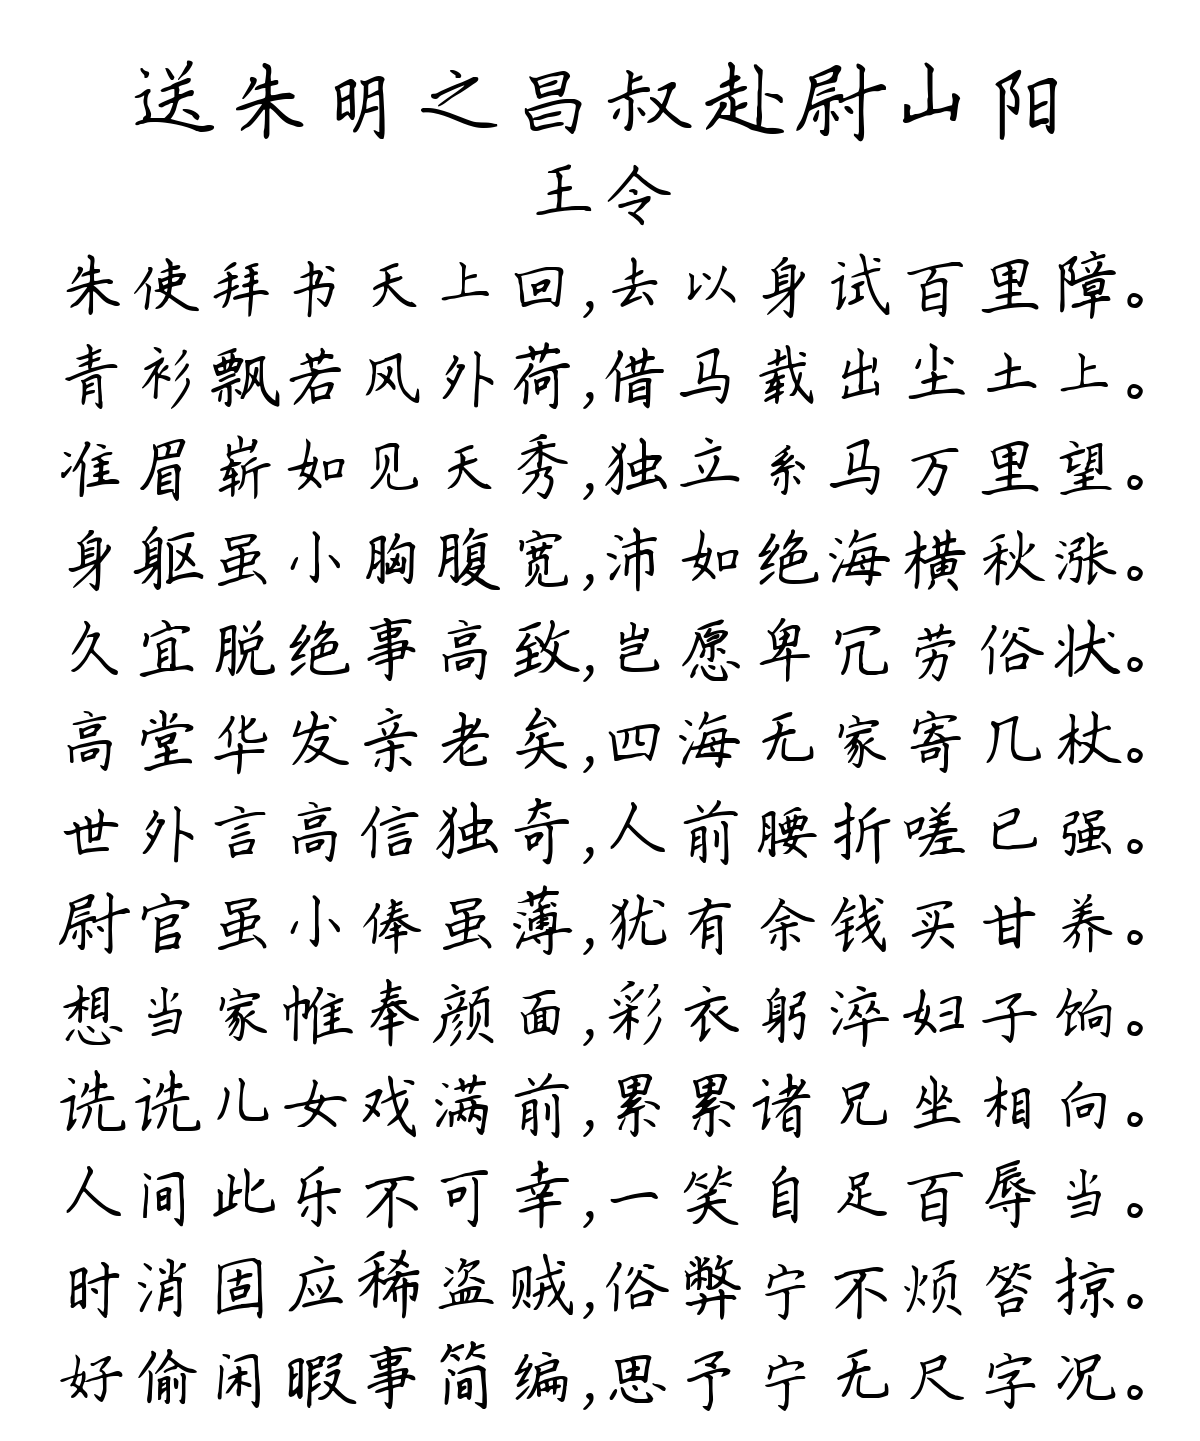 送朱明之昌叔赴尉山阳
王令
朱使拜书天上回,去以身试百里障。
青衫飘若风外荷,借马载出尘土上。
准眉崭如见天秀,独立系马万里望。
身躯虽小胸腹宽,沛如绝海横秋涨。
久宜脱绝事高致,岂愿卑冗劳俗状。
高堂华发亲老矣,四海无家寄几杖。
世外言高信独奇,人前腰折嗟已强。
尉官虽小俸虽薄,犹有余钱买甘养。
想当家帷奉颜面,彩衣躬滓妇子饷。
诜诜儿女戏满前,累累诸兄坐相向。
人间此乐不可幸,一笑自足百辱当。
时消固应稀盗贼,俗弊宁不烦笞掠。
好偷闲暇事简编,思予宁无尺字况。